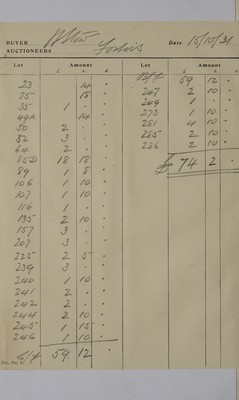 BUYER
AUCTIONEERS
Date 15/10/31
Lot Amount Lot Amount
£ s d £ s d
23 14 "
25 18 "
35 1 " "
49A 14 "
50 2 " "
52 3 " "
64 2 " "
85D 18 18 "
89 1 8 "
106 1 10 "
107 1 10 "
116 1 " "
135 2 10 "
157 3 " "
207 3 " "
225 2 5 "
239 3 " "
240 1 10 "
241 2 " "
242 2 " "
244 2 10 "
245 1 15 "
246 1 10 "
C/F 59 12 "
B/F 59 12 "
247 2 10 "
249 1 " "
273 1 10 "
281 4 10 "
285 2 10 "
286 2 10 "
£ 74 2 "